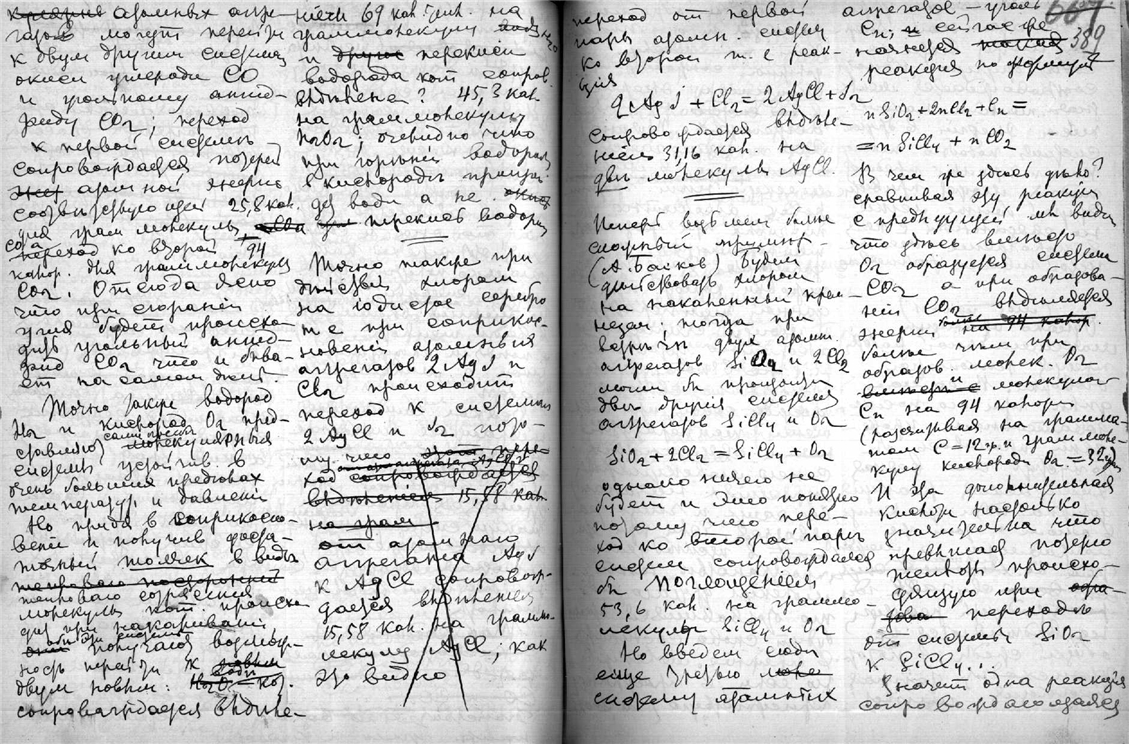 атомных агре-
гатов могут перейти
к двум другим системам
окиси углерода CO
и угольному анги-
дриду CO2, переход
к первой системе
сопровождается потерей
атомной энергии
соответствующей 25,8 кал.
для грам молекулы,
а переход ко второй 94
калор. для граммолекулы
CO2. Отсюда ясно
что при сгорании
угля будет происхо-
дить угольный анги-
дрид CO2 что и быва-
ет на самом деле.
Точно также водород
H2 и кислород O2 пред-
ставляют молекулярныя
системы устойчив. в
очень больших пределах
температур и давлений
Но придя в соприкосно-
вение и получив доста-
точный толчек в виде
тепловаго сотрясения
молекул кот. происхо-
дит при накаливании
системы получают возмож-
ность перейти к
двум новым: H2O - кот.
сопровождается выделе-
нием 69 кал. на
граммолекулу
и перекиси
водорода кот. сопров.
выделение? 45,3 кал.
на граммолекулу
H2O2, очевидно что
при горении водорода
в кислороде
дет вода а не
перекись водорода
Точно также при
действии хлором
на иодистое серебро
т е при соприкос-
новении атомных
агрегатов 2 AgJ и
Cl2 происходит
переход к системам
2 AgCl и J2 пото-
му что
ход сопровождается
выделением 15,58 кал.
на грам
от атомнаго
агрегата AgJ
к AgCl сопровож-
дается выделением
15,58 кал. на грамм-
лекулу AgCl, как
это видно
669
389
переход от первой
пары атомн. систем
ко второй т. е реак-
ция
2AgJ + Cl2 = 2AgCl + J2
сопровождается выделе-
нием 31,16 кал. на
две молекулы AgCl.
Теперь возьмем более
сложный пример
(А. Байков) Будем
действовать хлором
на накаленный крем-
незем, тогда при
встрече двух атомн.
агрегатов SiO2 и 2Cl2
могли бы произойти
два других системы
агрегатов SiCl4 и O2
SiO2 + 2Cl2 = SiCl4 + O2
однако ничего не
будет и это понятно
потому что пере-
ход ко второй паре
систем сопровождался
бы поглощением
53,6 кал. на граммо-
лекулы SiCl4 и O2
Но введем сюда
еще третью
систему атомных
агрегатов - уголь
Cn, и сейчас же
начнется
реакция по формуле
nSiO2 + 2nCl2 + Cn =
= n SiCl4 + n CO2
В чем же здесь дело?
сравнивая эту реакцию
с предыдущей мы видим
что здесь вместо
O2 образуется система
CO2 а при образова-
нии CO2 выделяется
энергии на 94 калор.
более чем при
образов. молек. O2
и молекулы
Cn на 94 калории
(рассчитывая на грамма-
том C=12 гр. и граммоле-
кулу кислорода O2 = 32 гр)
И эта дополнительная
калория настолько
значительна что
превышает потерю
теплоты происхо-
дящую при
переходе
от системы SiO2
к SiCl4...
Значит одна реакция
сопровождающаяся